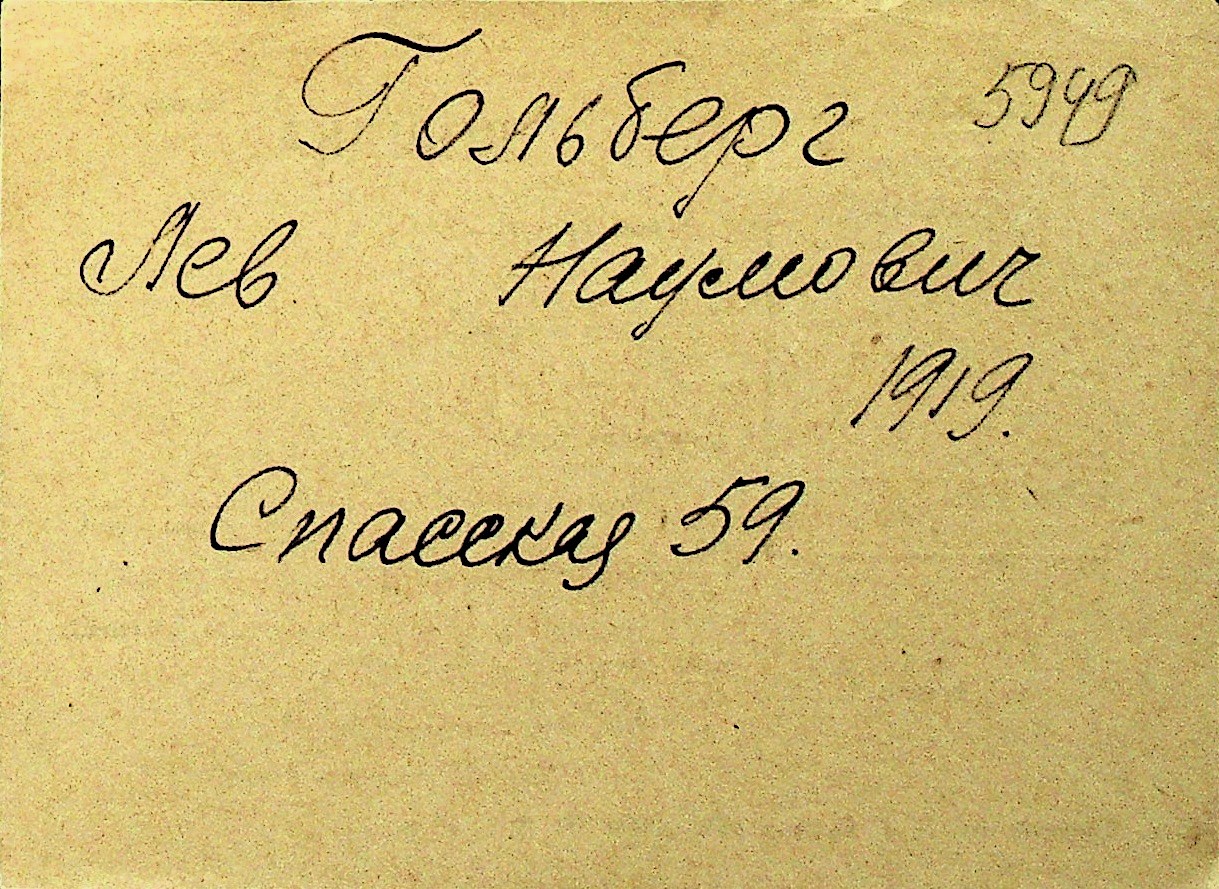 Гольберг 5949
Лев Наумович
1919.
Спасская 59.